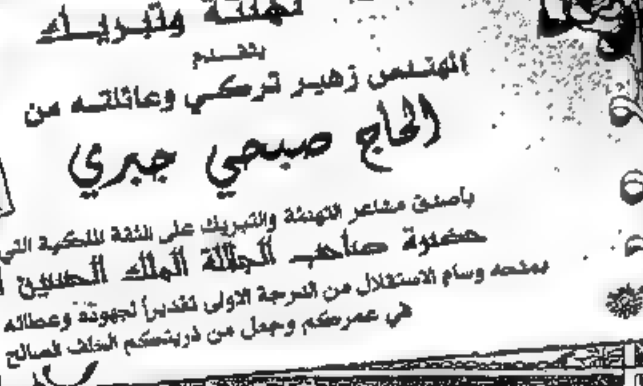 تهنئة وتبريك
يتقدم
المهندس زهير تركي وعائلته من
الحاج صبحي جبري
باصدق مشاعر التهنئة والتبريك على الثقة الملكية التي
حضرة صاحب الجلالة الملك
بمنحه وسام الاستقلال من الدرجة الاولى تقديراً لجهوده وعطائه
في عمركم وجعل من ذريتكم الخلف الصالح